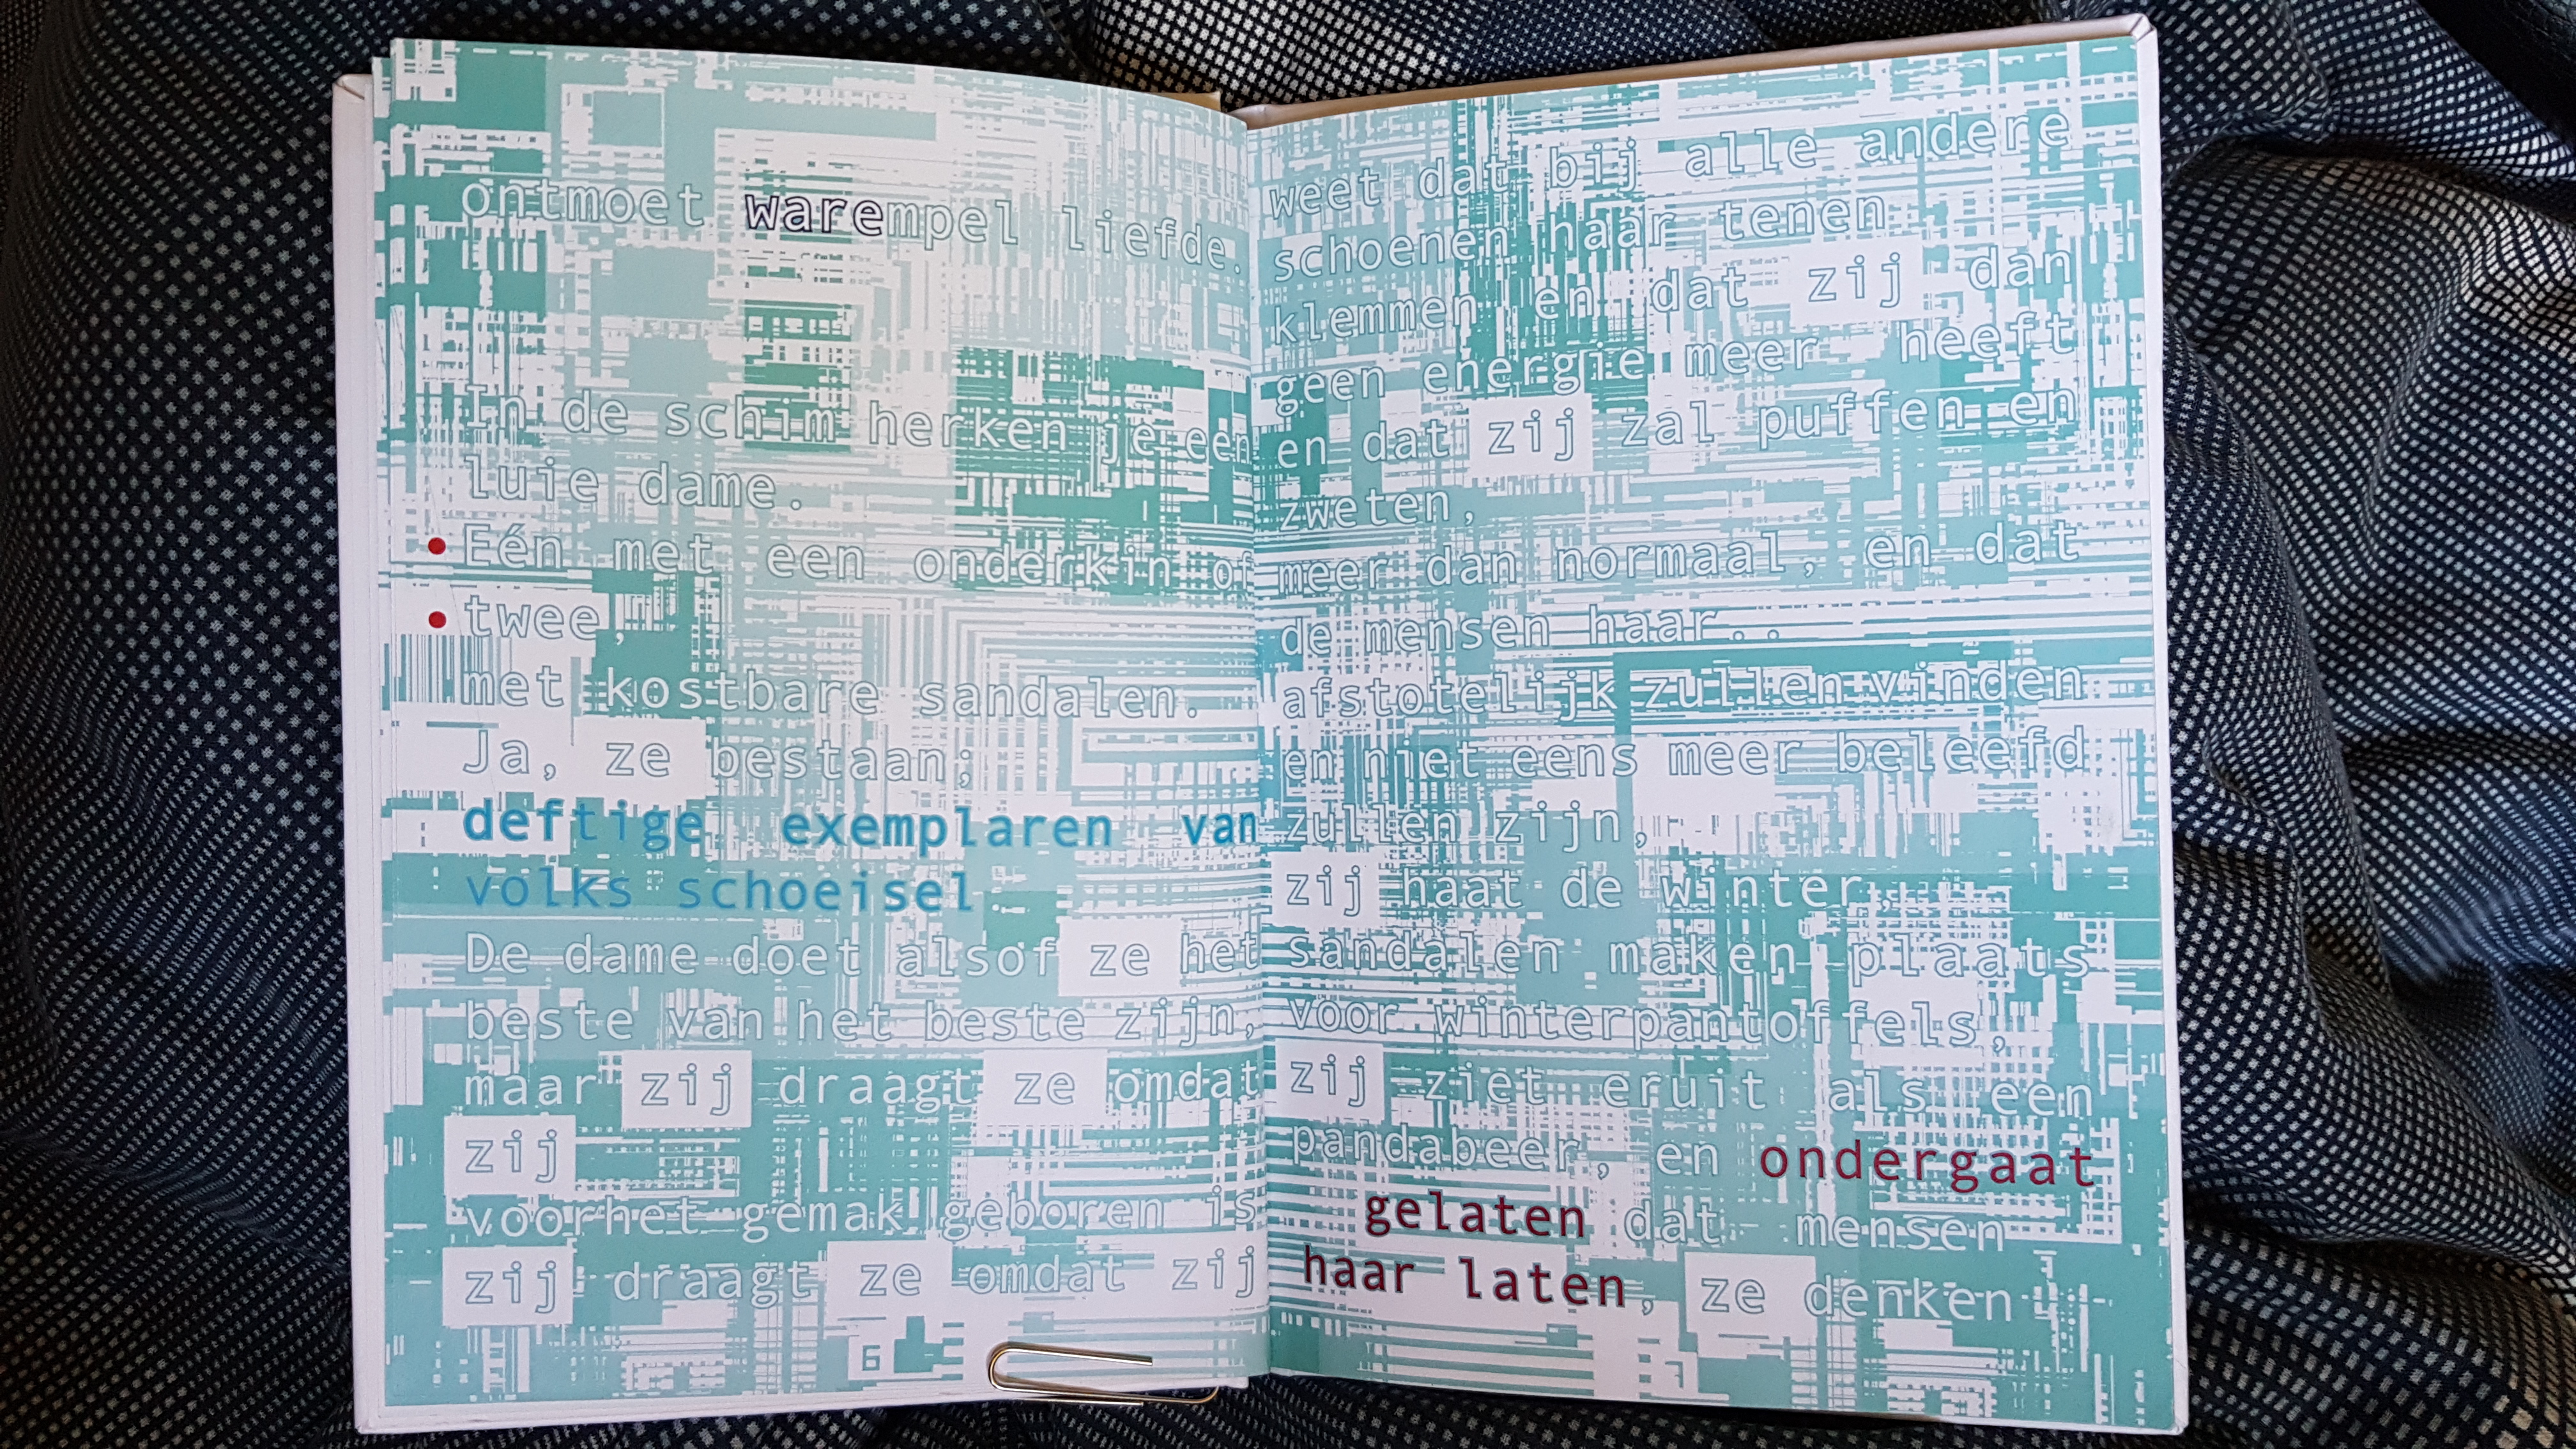 ontmoet warempel liefde.
In de schim herken je een
luie dame.
• Eén met een onderkin of
• twee,
met kostbare sandalen.
Ja, ze bestaan;
deftige exemplaren van
volks schoeisel
De dame doet alsof ze het
beste van het beste zijn,
maar zij draagt ze omdat
zij
voorhet gemak geboren is
zij draagt ze omdat zij
weet dat bij alle andere
schoenen haar tenen
klemmen en dat zij dan
geen energie meer heeft
en dat zij zal puffen en
zweten,
meer dan normaal, en dat
de mensen haar..
afstotelijk zullen vinden
en niet eens meer beleefd
zullen zijn,
zij haat de winter,
sandalen maken plaats
voor winterpantoffels,
zij ziet eruit als een
pandabeer, en ondergaat
gelaten dat mensen
haar laten, ze denken